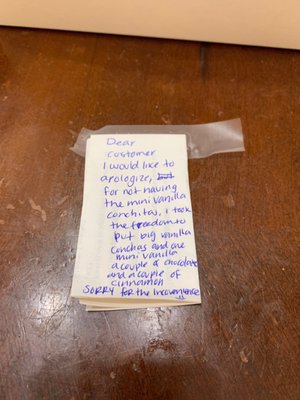 Dear
customer
I would like to
apologize, but
for not having
the mini vanilla
conchitas, i took
the freedom to
put big vanilla
conchas and one
mini vanilla
a couple of chocolate
and a couple of
cinnamon
SORRY for the Incovenience